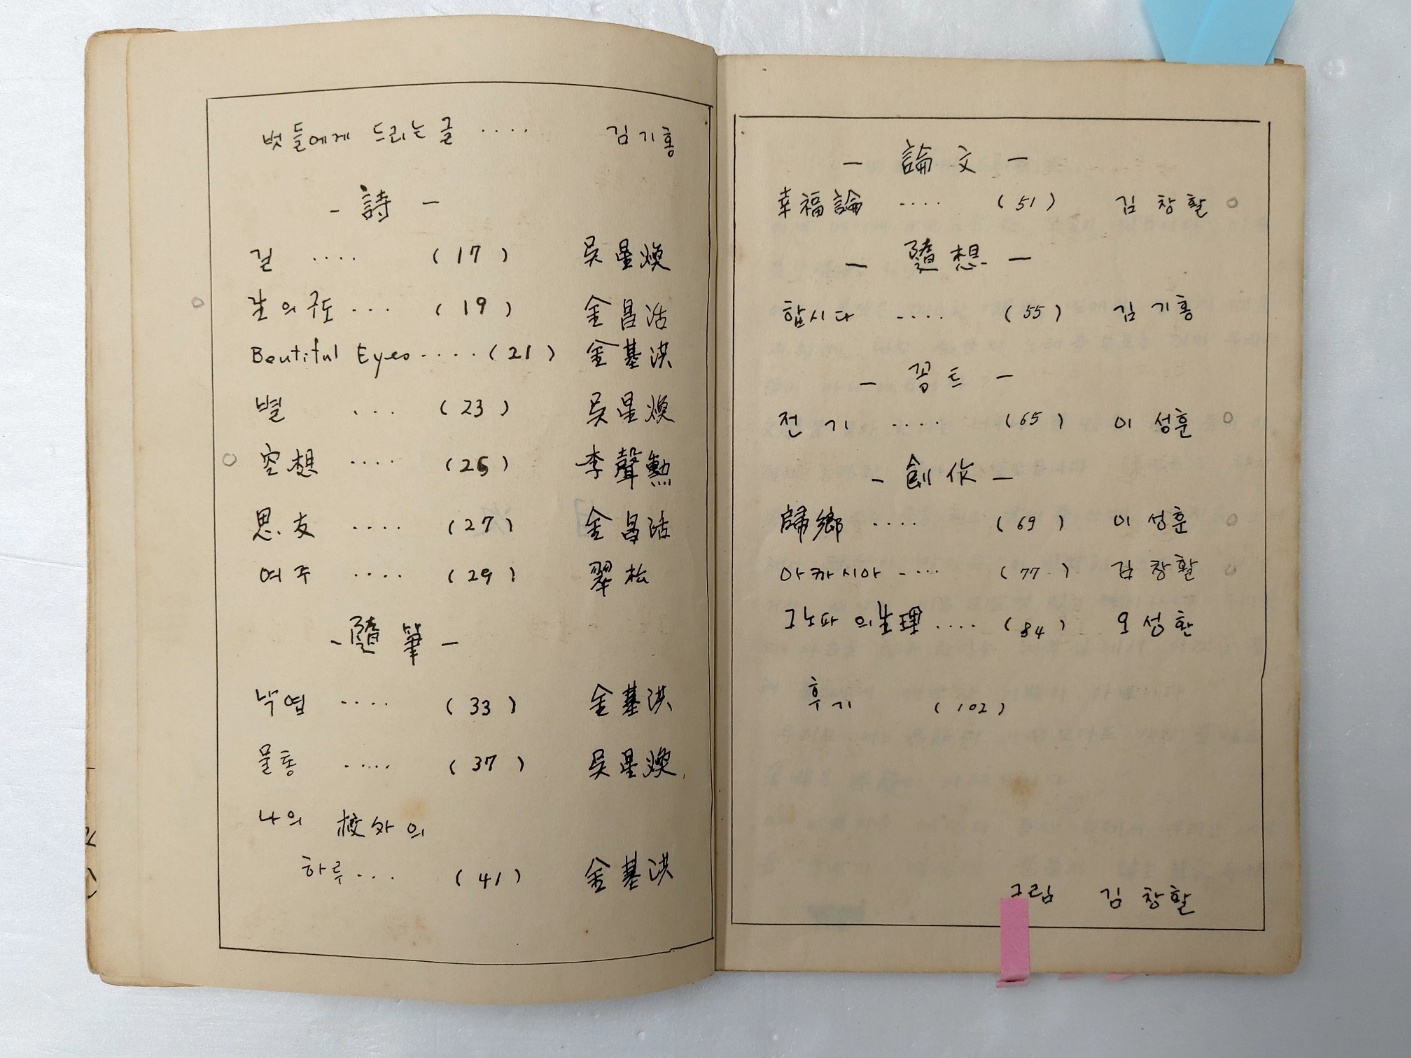 벗들에게 드리는 글 .... 김기홍
- 詩 -
길 .... (17) 吳星煥
生의 구도 ... (19) 金昌活
Beutiful Eyes .... (21) 金基洪
별 ... (23) 吳星煥
空想 .... (25) 李聲勲
思友 .... (27) 金昌活
여주 .... (29) 翠松
- 隨筆 -
낙엽 .... (33) 金基洪
물통 .... (37) 吳星煥
나의 校外의
하루 ... (41) 金基洪
- 論文 -
幸福論 .... (51) 김창활
- 隨想 -
합시다 .... (55) 김기홍
- 꽁트 -
전기 .... (65) 이성훈
- 創作 -
歸鄕 .... (69) 이성훈
아카시아 .... (77) 김창활
그노파의 生理 .... (84) 오성환
후기 (102)
그림 김창활